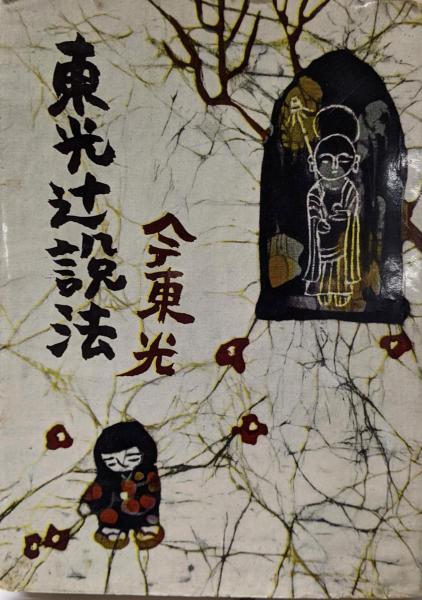 東光辻説法
今東光